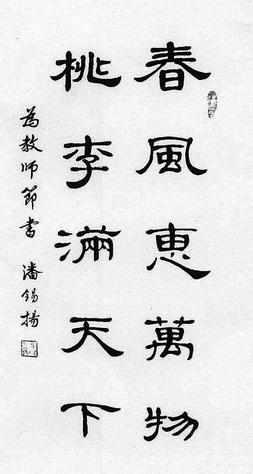 春風惠萬物
桃李滿天下
為教師節書 潘錫揚